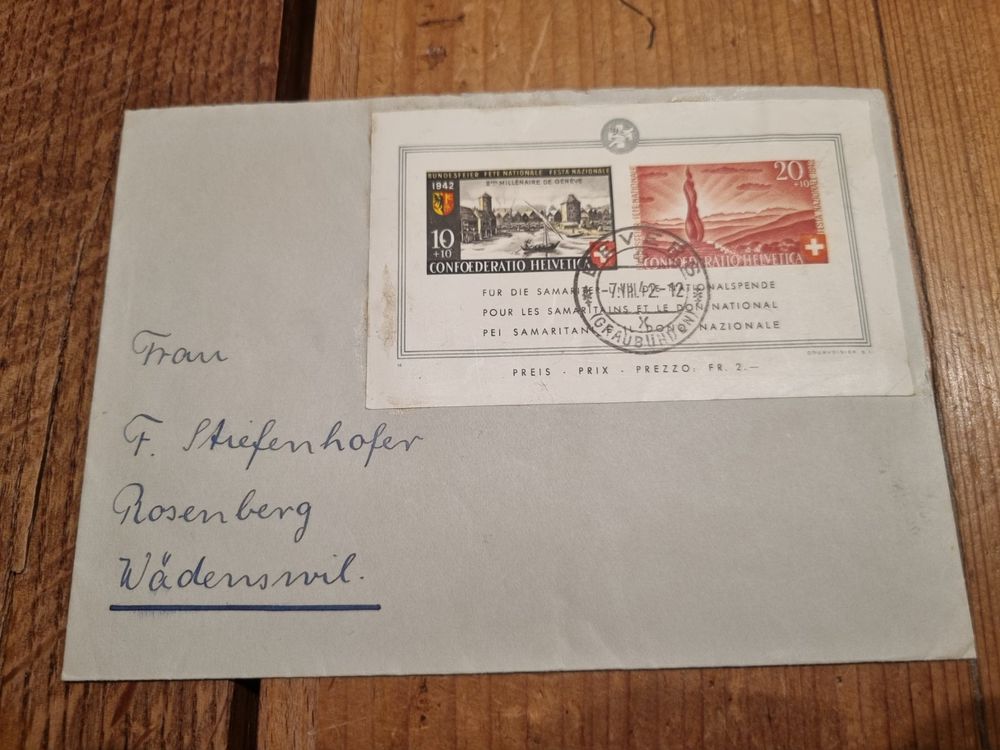 BUNDESFEIER FÊTE NATIONALE FESTA NAZIONALE
1942
MILLÉNAIRE DE GENÈVE
10
+10
CONFOEDERATIO HELVETICA
20
+10
CONFOEDERATIO HELVETICA
BEVERS
-7.VIII.42.-12
X
(GRAUBÜNDEN)
FÜR DIE SAMARITER UND DIE NATIONALSPENDE
POUR LES SAMARITAINS ET LE DON NATIONAL
PEI SAMARITANI E IL DONO NAZIONALE
COURVOISIER S.A.
PREIS - PRIX - PREZZO: FR. 2.—
Frau
F. Stiefenhofer
Rosenberg
Wädenswil.